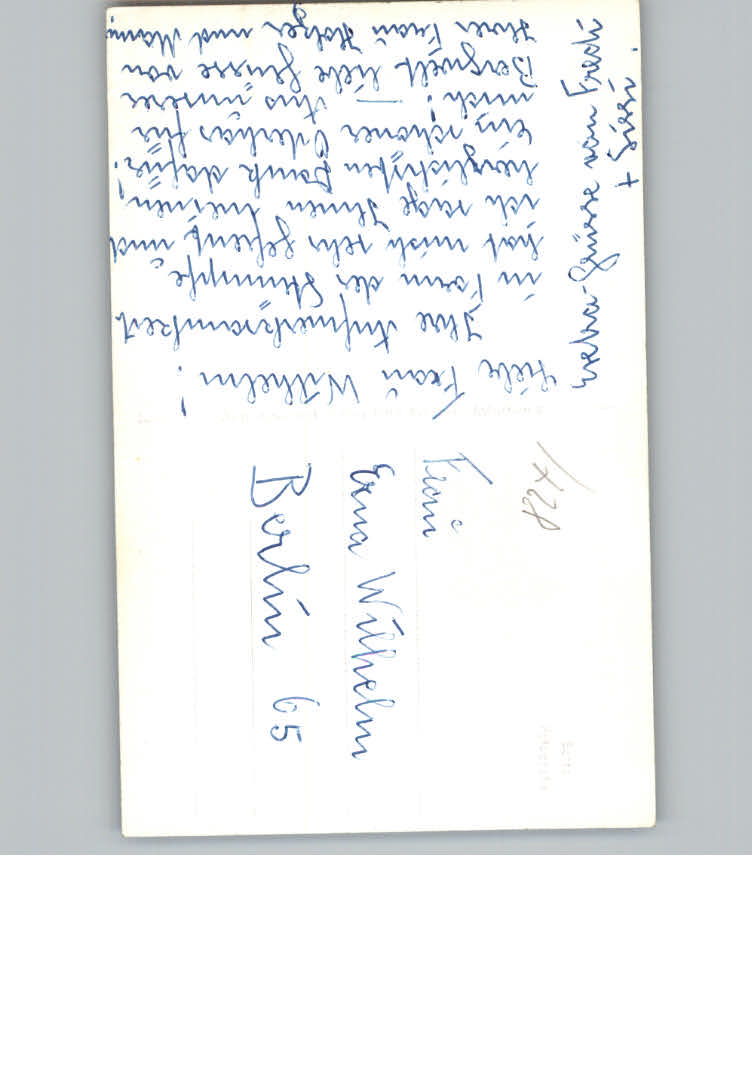 Liebe Frau Wilhelm!
Ihre Aufmerksamkeit
in Form der Strümpfe
hat mich sehr gefreut und
ich sage Ihnen meinen
herzlichsten Dank dafür!
Ein schöner Osterhas für
mich! — Aus unserer
Bergwelt liebe Grüsse von
Ihrer Frau Holzer und Mann.
Extra-Grüsse von Fredi
+ Sissi.
Frau
Erna Wilhelm
Berlin 65